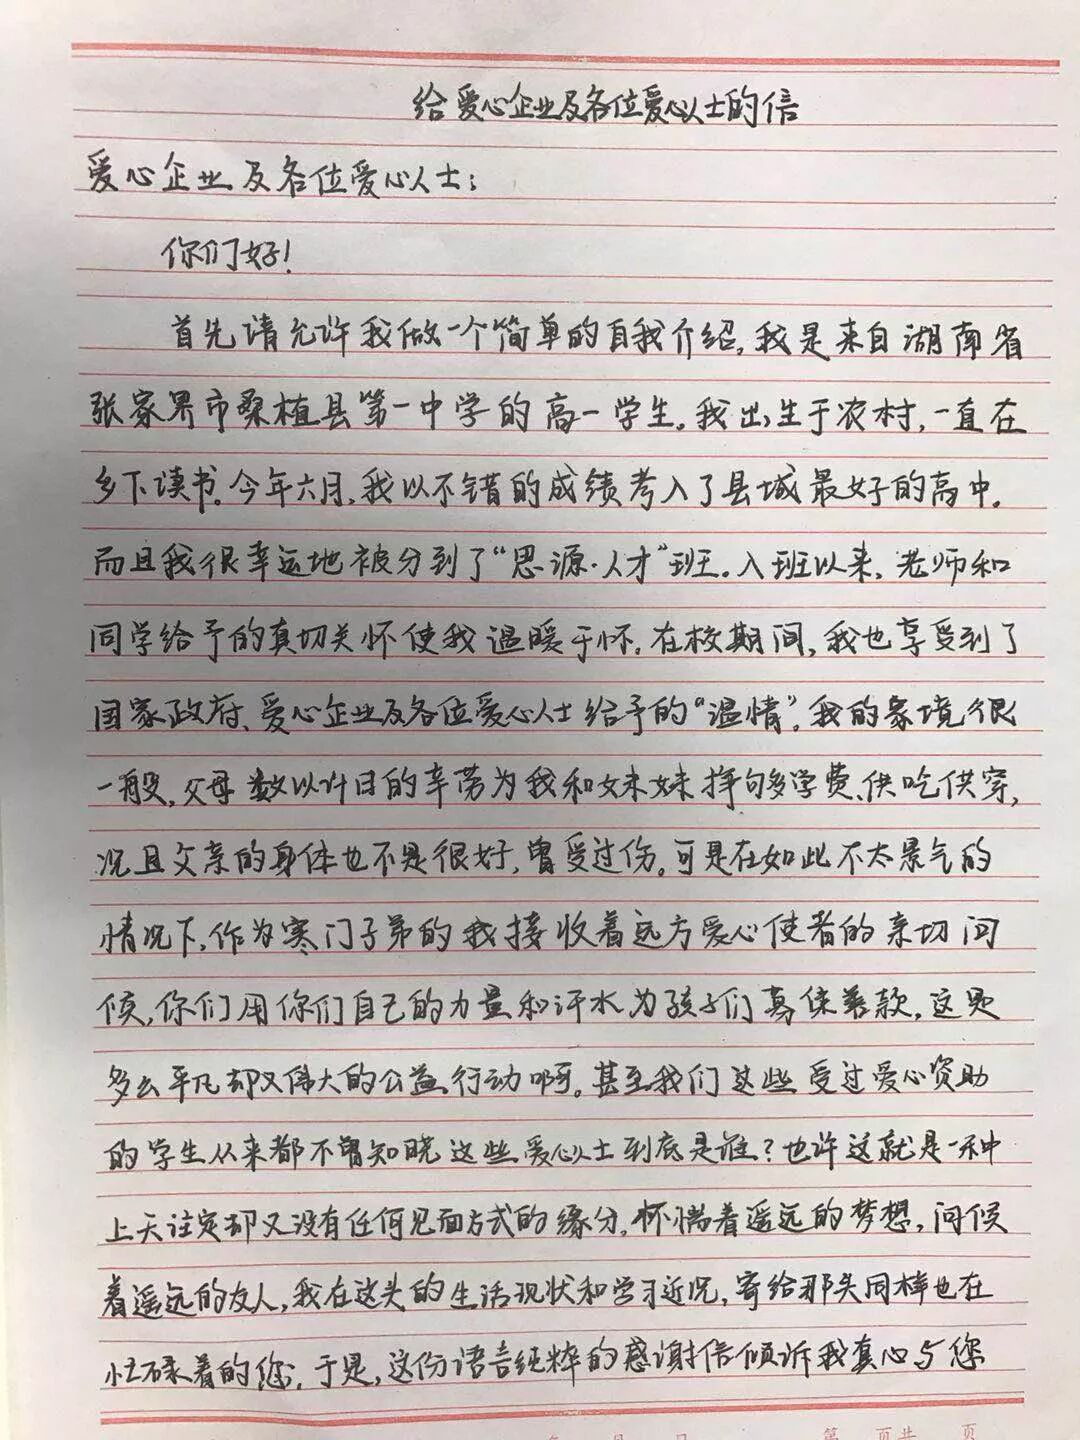 给爱心企业及各位爱心人士的信
爱心企业及各位爱心人士：
你们好！
首先请允许我做一个简单的自我介绍，我是来自湖南省
张家界市桑植县第一中学的高一学生。我出生于农村，一直在
乡下读书。今年六月，我以不错的成绩考入了县城最好的高中。
而且我很幸运地被分到了“思源·人才”班。入班以来，老师和
同学给予的真切关怀使我温暖于怀。在校期间，我也享受到了
国家政府、爱心企业及各位爱心人士给予的“温情”。我的家境很
一般，父母数以计日的辛劳为我和妹妹挣够学费、供吃供穿，
况且父亲的身体也不是很好，曾受过伤。可是在如此不太景气的
情况下，作为寒门子弟的我接收着远方爱心使者的亲切问
候，你们用你们自己的力量和汗水为孩子们募集善款，这是
多么平凡却又伟大的公益行动啊。甚至我们这些受过爱心资助
的学生从来都不曾知晓这些爱心人士到底是谁？也许这就是一种
上天注定却又没有任何见面方式的缘分，怀惴着遥远的梦想，问候
着遥远的友人，我在这头的生活现状和学习近况，寄给那头同样也在
忙碌着的您。于是，这份语言纯粹的感谢信倾诉我真心与您
第 页共 页